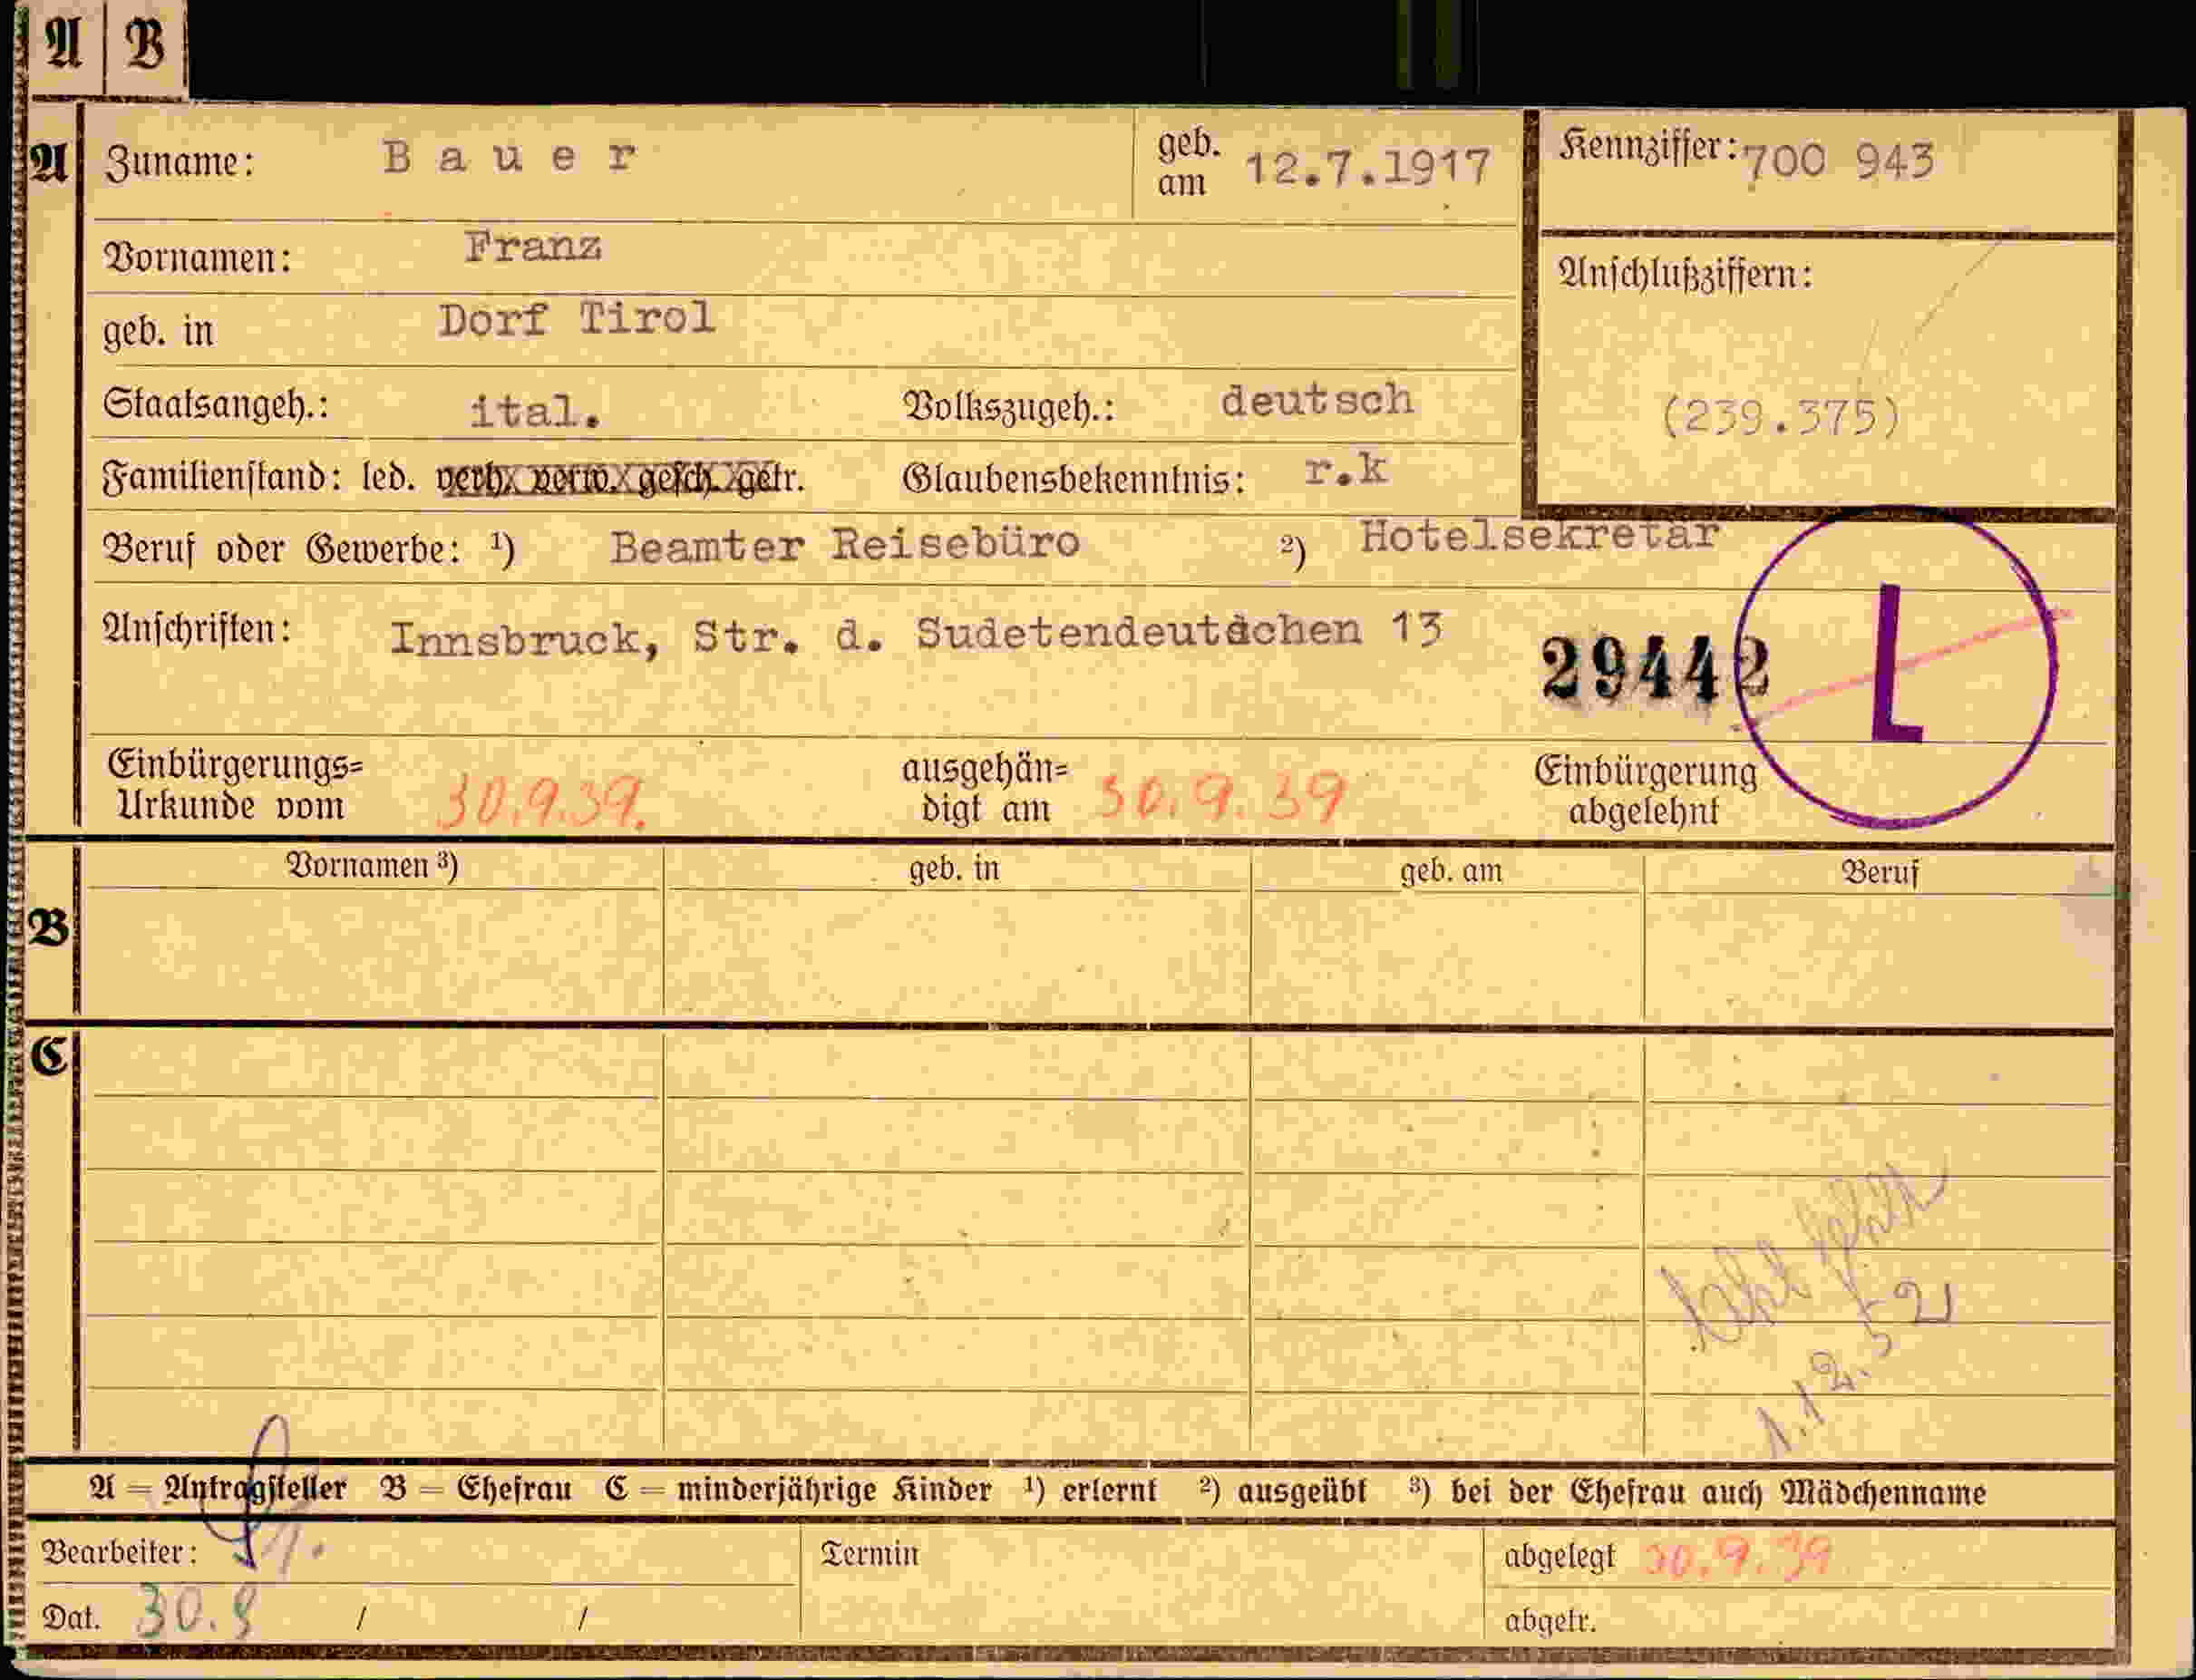 A B
A Zuname: Bauer geb. am 12.7.1917 Kennziffer: 700 943
Vornamen: Franz
Anschlußziffern:
geb. in Dorf Tirol
Staatsangeh.: ital. Volkszugeh.: deutsch (239.375)
Familienstand: led. verh. verw. gesch. getr. Glaubensbekenntnis: r.k
Beruf oder Gewerbe: ¹) Beamter Reisebüro ²) Hotelsekretär
Anschriften: Innsbruck, Str. d. Sudetendeutschen 13
29442 L
Einbürgerungs= Urkunde vom 30.9.39. ausgehän= digt am 30.9.39 Einbürgerung abgelehnt
Vornamen ³) geb. in geb. am Beruf
B
C
1.12.52
A = Antragsteller B = Ehefrau C = minderjährige Kinder ¹) erlernt ²) ausgeübt ³) bei der Ehefrau auch Mädchenname
Bearbeiter: Termin abgelegt 30.9.39
Dat. 30.9 / / abgetr.